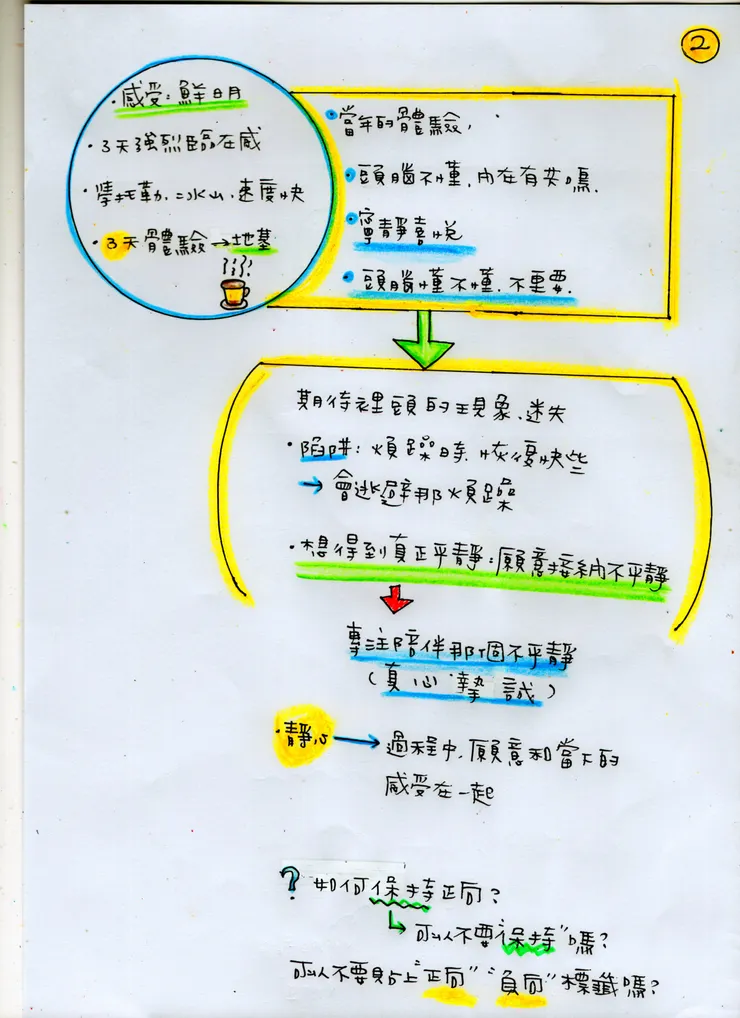 2
·感受:鮮明
·3天強烈臨在感
·學托勒.二冰山.速度快
·3天體驗→地基
·當年的體驗,
·頭腦不懂,內在有共鳴.
·寧靜喜悅
·頭腦懂不懂.不重要.
期待裡頭的現象.迷失
·陷阱:煩躁時.恢復快些
→會逃避那煩躁
·想得到真正平靜:願意接納不平靜
專注陪伴那個不平靜
(真心摯誠)
·靜心→過程中.願意和當下的
感受在一起
?如何保持正向?
可以不要"保持"嗎?
可以不要貼上"正向""負向"標籤嗎?